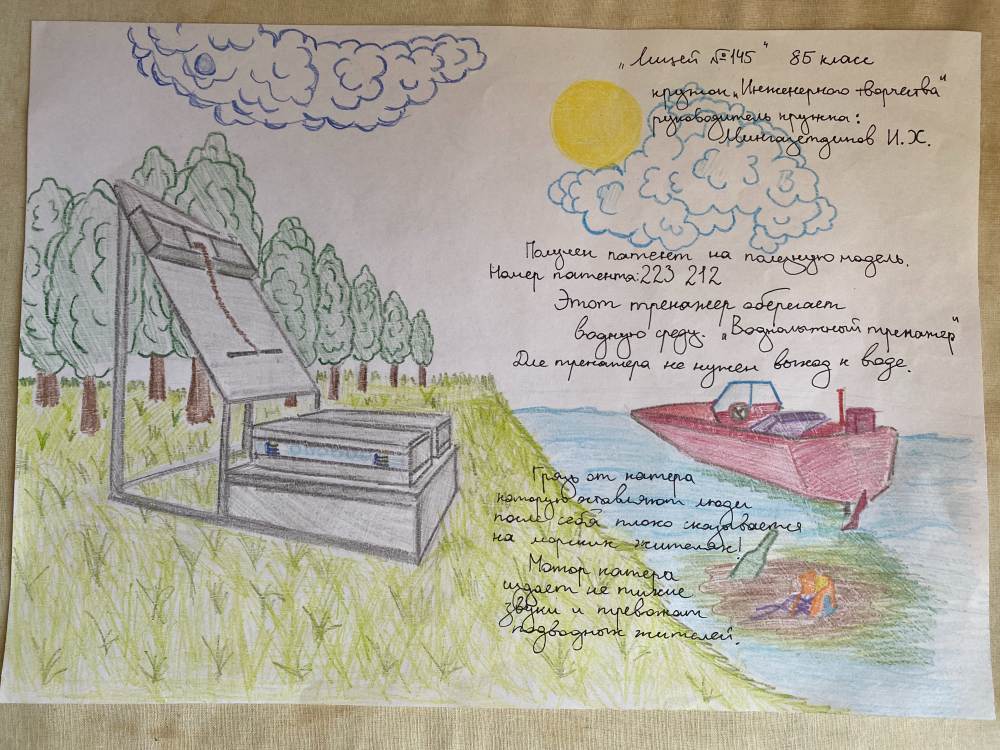 „Лицей №145" 8Б класс
кружок „Инженерного творчества"
руководитель кружка:
Мингазетдинов И. Х.
Получен патент на полезную модель.
Номер патента: 223 212
Этот тренажер оберегает
водную среду. „Воднолыжный тренажер"
Для тренажера не нужен выход к воде.
Грязь от катера
которую оставляют люди
после себя плохо сказывается
на морских жителях!
Мотор катера
издает не тихие
звуки и тревожат
подводных жителей.